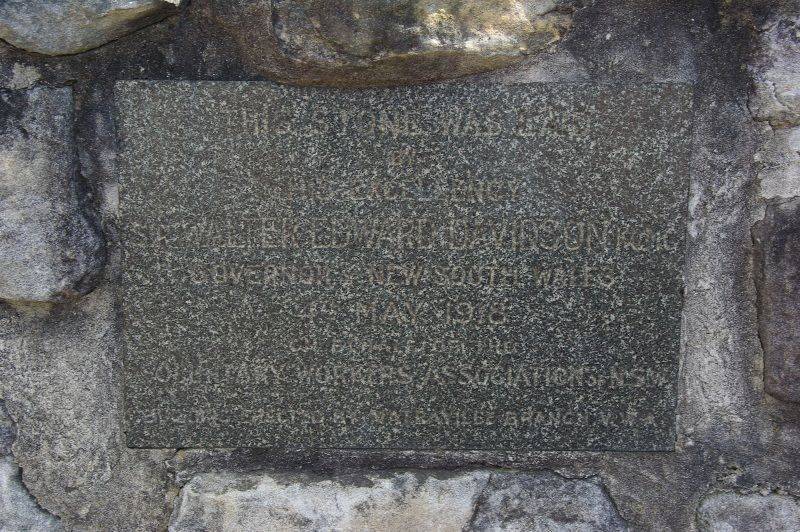 THIS STONE WAS LAID
BY
HIS EXCELLENCY
SIR WALTER EDWARD DAVIDSON K.C.M.G.
GOVERNOR OF NEW SOUTH WALES
4TH MAY 1918
ON BEHALF OF THE
VOLUNTARY WORKERS ASSOCIATION OF N.S.W.
ERECTED BY BRANCH V.W.A.